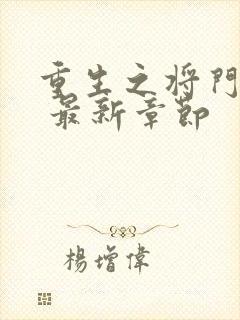 重生之将門
最新章節
楊增偉